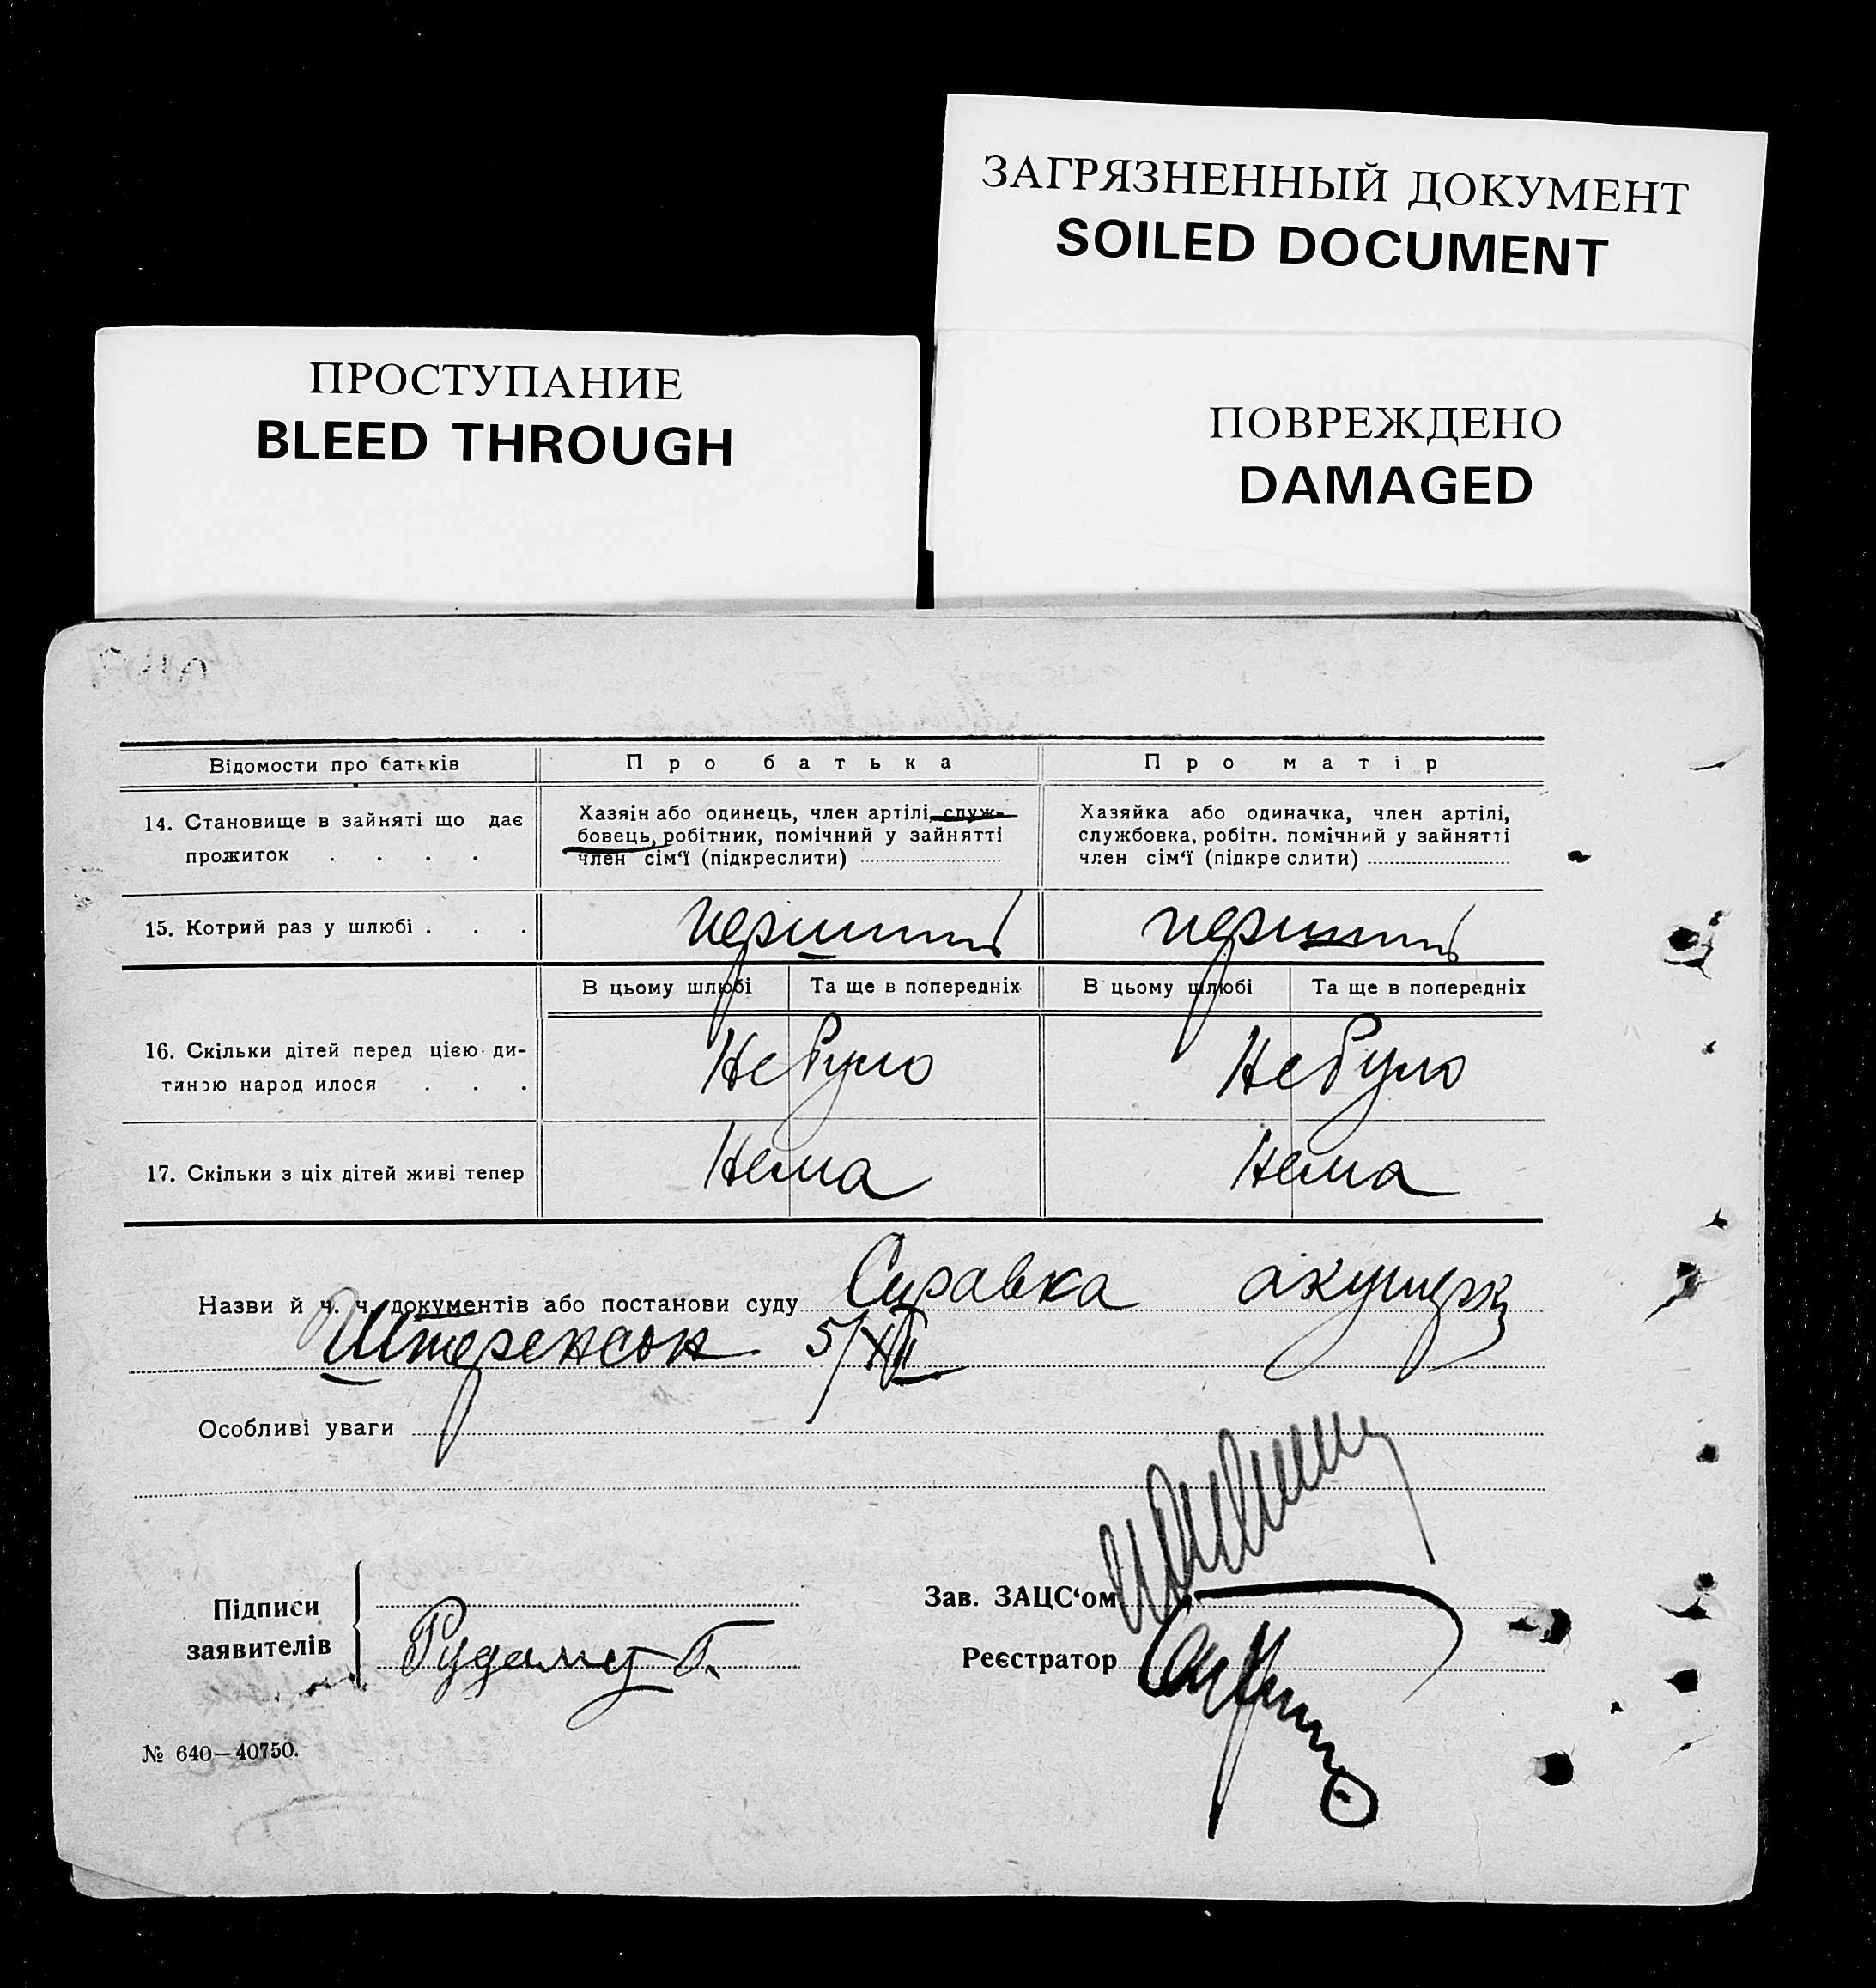 ЗАГРЯЗНЕННЫЙ ДОКУМЕНТ
SOILED DOCUMENT
ПРОСТУПАНИЕ
BLEED THROUGH
ПОВРЕЖДЕНО
DAMAGED
Відомости про батьків
Про батька
Про матір
14. Становище в зайняті що дає
прожиток . . . .
Хазяін або одинець, член артілі, служ-
бовець, робітник, помічний у зайнятті
член сім‘ї (підкреслити)
Хазяйка або одиначка, член артілі,
службовка, робітн. помічний у зайнятті
член сім‘ї (підкре слити)
15. Котрий раз у шлюбі . . .
перший
перший
В цьому шлюбі
Та ще в попередніх
В цьому шлюбі
Та ще в попередніх
16. Скільки дітей перед цією ди-
тиною народ илося . . .
Не було
Не було
17. Скільки з ціх дітей живі тепер
Нема
Нема
Назви й ч. ч. документів або постанови суду Справка акушерк
Штеренсон 5/XII
Особливі уваги
Підписи
заявителів
Зав. ЗАЦС‘ом
Реєстратор
№ 640—40750.